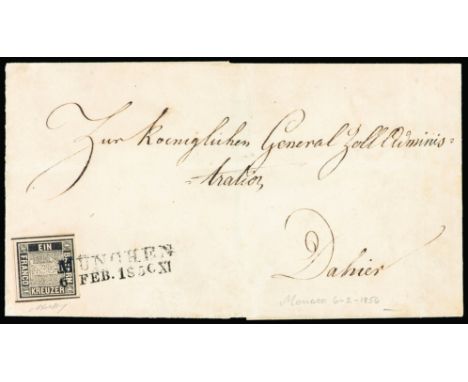 Zur Koeniglichen General Zoll Adminis=
=tration,
Dahier
EIN
FRANCO
KREUZER
MÜNCHEN
6 FEB. 1850 XI
Monaco 6-2-1850